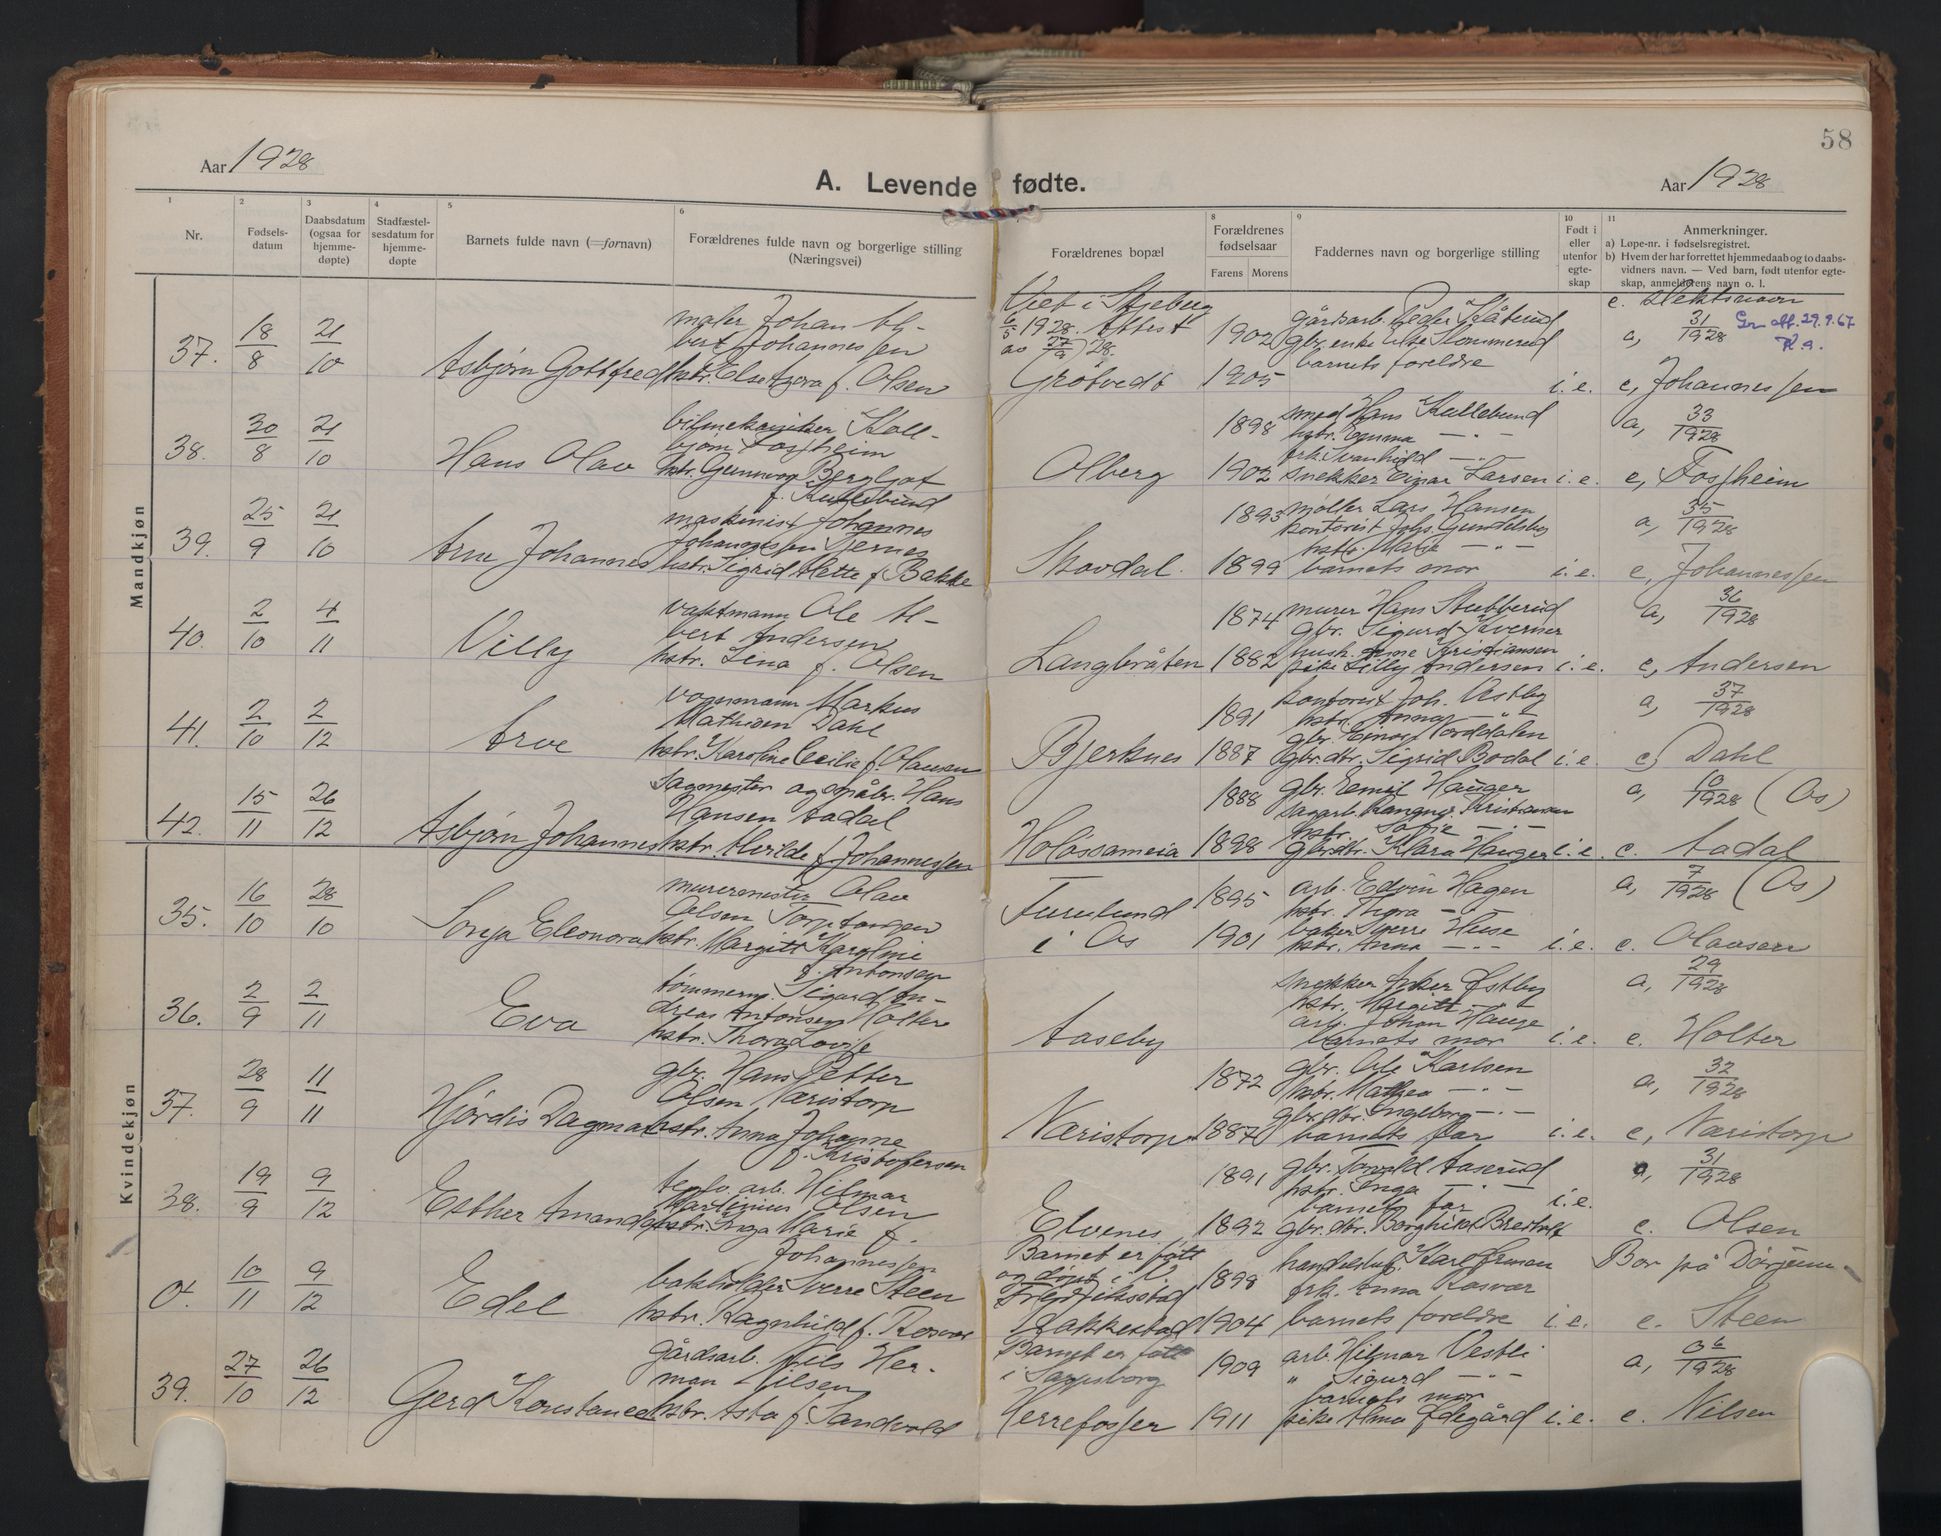 58
Aar 1928
A. Levende fødte.
Aar 1928
1 2 3 4 5 6 8 9 10 11
Nr.
Fødselsdatum
Daabsdatum (ogsaa for hjemmedøpte)
Stadfæstelsesdatum for hjemmedøpte
Barnets fulde navn (=fornavn)
Forældrenes fulde navn og borgerlige stilling (Næringsvei)
Forældrenes bopæl
Forældrenes fødselsaar
Farens Morens
Faddernes navn og borgerlige stilling
Født i eller utenfor egteskap
Anmerkninger.
a) Løpe-nr. i fødselsregistret.
b) Hvem der har forrettet hjemmedaab og to daabsvidners navn. — Ved barn, født utenfor egteskap, anmelderens navn o. l.
Mandkjøn
37. 18/8 21/10
Asbjørn Gottfred
maler Johan Al-
bert Johannessen
hstr. Else f. Olsen
Viet i Skjeberg
1928. Attest
av 27/9 28.
Grötvedt
1902
1905
gårdsarb. Peder Kåterud
gbr. enke
barnets foreldre
i.e.
c. slektsnavn
a, 31/1928
29.9.67
c, Johannessen
38. 30/8 21/10
Hans Olav
bilmekaniker Kol-
bjørn Fossheim
hstr. Gunvor Bergljot
f. Kullebund
Olberg
1898
1902
smed Hans Kullebund
hstr. Emma — " —
frk. Svanhild — " —
snekker Einar Larsen
i.e.
a, 33/1928
c, Fossheim
39. 25/9 21/10
Arne Johannes
maskinist Johannes
Johannessen
hstr. Sigrid Alette f. Bakke
Skovdal
1893
1899
møller Lars Hansen
kontorist Johs. Gundelsby
hstr. — " —
barnets mor
i.e.
a, 35/1928
c, Johannessen
40. 2/10 4/11
Villy
vaktmann Ole Al-
bert Andersen
hstr. Lina f. Olsen
Langbråten
1874
1882
murer Hans Stubberud
gbr. Sigurd Kverner
hush. Anne Kristiansen
pike Lilly Andersen
i.e.
a, 36/1928
c, Andersen
41. 2/10 2/12
Arve
vognmann Markus
Mathisen Dahl
hstr. Karoline Cecilie f. Olausen
Bjerknes
1891
1887
kontorist Joh. Østby
hstr. Anna — " —
gbr. Einar Norddalen
gbr.dtr. Sigrid Bodal
i.e.
a, 37/1928
c, Dahl
42. 15/11 26/12
Asbjørn Johannes
Sagmester og småbr. Hans
Hansen Aadal
hstr. Alvilde f. Johannessen
1888
1898
gbr. Emil Hauger
sagarb. Kristiansen
hstr. Sofie — " —
gbr.dtr. Klara Hauger
i.e.
a, 10/1928 (Os)
c. Aadal
Kvindekjøn
35. 16/10 28/10
Sonja Eleonora
murermester Olav
Olsen Torptangen
hstr. Margitt Karoline
f. Antonsen
Furulund
i Os
1895
1901
arb. Edvin Hagen
hstr. Thora — " —
baker Sverre Huse
hstr. Anna — " —
i.e.
a, 7/1928 (Os)
c. Olausen
36. 2/9 2/11
Eva
tømmerm. Sigurd An-
dreas Antonsen Holter
hstr. Thora Lovise
Aaseby
snekker Anker Østby
hstr. Margitt — " —
arb. Johan Hauge
barnets mor
i.e.
a, 29/1928
c. Holter
37. 28/9 11/11
Hjørdis Dagmar
gbr. Hans Petter
Olsen Næristorp
hstr. Anna Johanne
f. Kristofersen
Næristorp
1872
1887
gbr. Ole Karlsen
hstr. Mathea — " —
gbr.dtr. Ingeborg — " —
barnets far
i.e.
a, 32/1928
c, Næristorp
38. 19/9 9/12
Esther Amanda
arb. Hilmar
Martinius Olsen
hstr. Inga Marie f.
Johannessen
Elvenes
1891
1892
gbr. Torvald Aaserud
hstr. Inga — " —
barnets far
gbr.dtr. Borghild
i.e.
a, 31/1928
c. Olsen
0. 10/11 9/12
Edel
Sverre Steen
hstr. Ragnhild f. Rosvar
Barnet er født
og døpt i
Fredriksstad
Rakkestad
1898
1904
Karl Herman
frk. Anna Rosvar
barnets foreldre
i.e.
Bor på
c. Steen
39. 27/10 26/12
Gerd Konstance
gårdsarb. Nils Her-
man Nilsen
hstr. Asta f. Sandvold
Barnet er født
i Sarpsborg
Herrefosser
1909
1911
arb. Hilmar Vestli
" Sigurd — " —
barnets mor
pike Alma Ødegård
i.e.
a, 36/1928
c. Nilsen